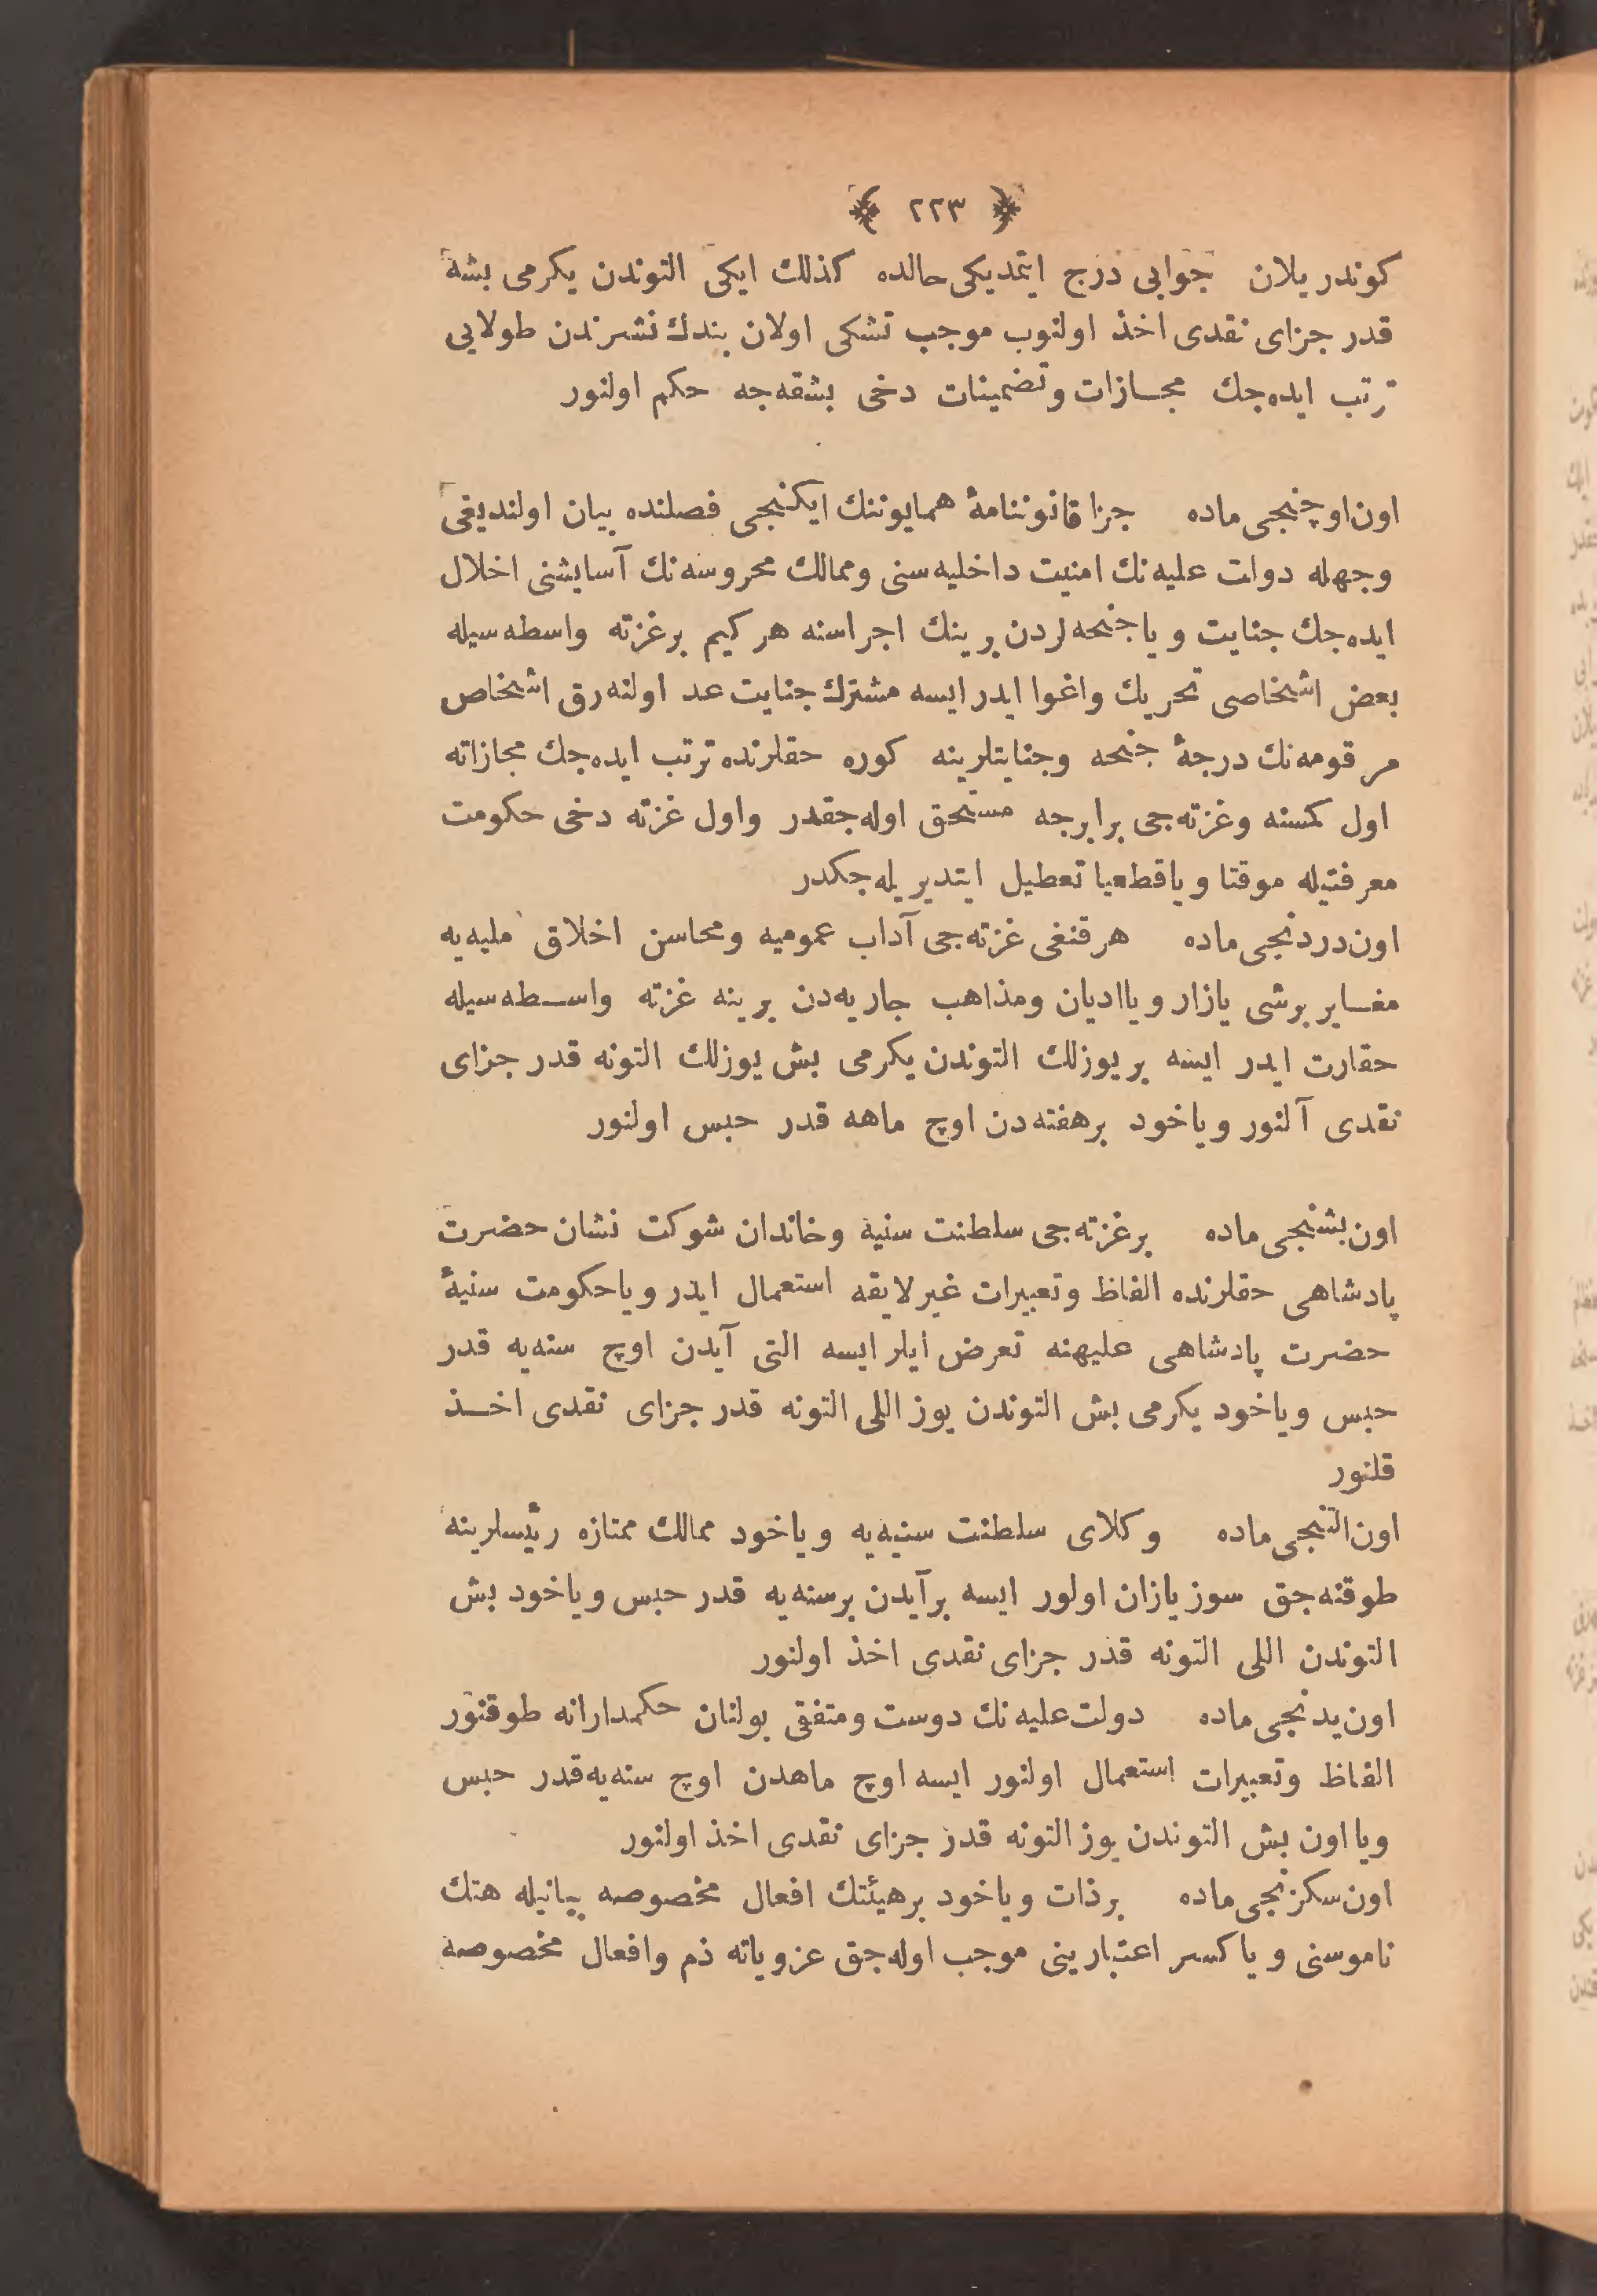 ﴿ ٢٢٣ ﴾
كوندريلان جوابى درج ايتمديكى حالده كذلك ايكى التوندن يكرمى بشه
قدر جزاى نقدى اخذ اولنوب موجب تشكى اولان بندك نشرندن طولايى
ترتب ايده‌جك مجازات وتضمينات دخى بشقه‌جه حكم اولنور
اون‌اوچنجى ماده جزا قانوننامۀ همايوننك ايكنجى فصلنده بيان اولنديغى
وجهله دولت عليه‌نك امنيت داخليه‌سنى وممالك محروسه‌نك آسايشنى اخلال
ايده‌جك جنايت ويا جنحه‌لردن برينك اجراسنه هر كيم بر غزته واسطه‌سيله
بعض اشخاصى تحريك واغوا ايدر ايسه مشترك جنايت عد اولنه‌رق اشخاص
مرقومه‌نك درجۀ جنحه وجنايتلرينه كوره حقلرنده ترتب ايده‌جك مجازاته
اول كمسنه وغزته‌جى برابرجه مستحق اوله‌جقدر واول غزته دخى حكومت
معرفتيله موقتا ويا قطعيا تعطيل ايتديريله‌جكدر
اون‌دردنجى ماده هر قنغى غزته‌جى آداب عموميه ومحاسن اخلاق مليه‌يه
مغاير برشى يازار ويا اديان ومذاهب جاريه‌دن برينه غزته واسطه‌سيله
حقارت ايدر ايسه بر يوزلك التوندن يكرمى بش يوزلك التونه قدر جزاى
نقدى آلنور وياخود برهفته‌دن اوچ ماهه قدر حبس اولنور
اون‌بشنجى ماده بر غزته‌جى سلطنت سنيه وخاندان شوكت نشان حضرت
پادشاهى حقلرنده الفاظ وتعبيرات غير لايقه استعمال ايدر ويا حكومت سنيۀ
حضرت پادشاهى عليهنه تعرض ايلر ايسه التى آيدن اوچ سنه‌يه قدر
حبس وياخود يكرمى بش التوندن يوز اللى التونه قدر جزاى نقدى اخذ
قلنور
اون‌التنجى ماده وكلاى سلطنت سنيه‌يه وياخود ممالك ممتازه رئيسلرينه
طوقنه‌جق سوز يازان اولور ايسه بر آيدن برسنه‌يه قدر حبس وياخود بش
التوندن اللى التونه قدر جزاى نقدى اخذ اولنور
اون‌يدنجى ماده دولت عليه‌نك دوست ومتفقى بولنان حكمدارانه طوقنور
الفاظ وتعبيرات استعمال اولنور ايسه اوچ ماهدن اوچ سنه‌يه قدر حبس
ويا اون بش التوندن يوز التونه قدر جزاى نقدى اخذ اولنور
اون‌سكزنجى ماده بر ذات وياخود بر هيئتك افعال مخصوصه بيانيله هتك
ناموسنى ويا كسر اعتبارينى موجب اوله‌جق عزوياته ذم وافعال مخصوصه